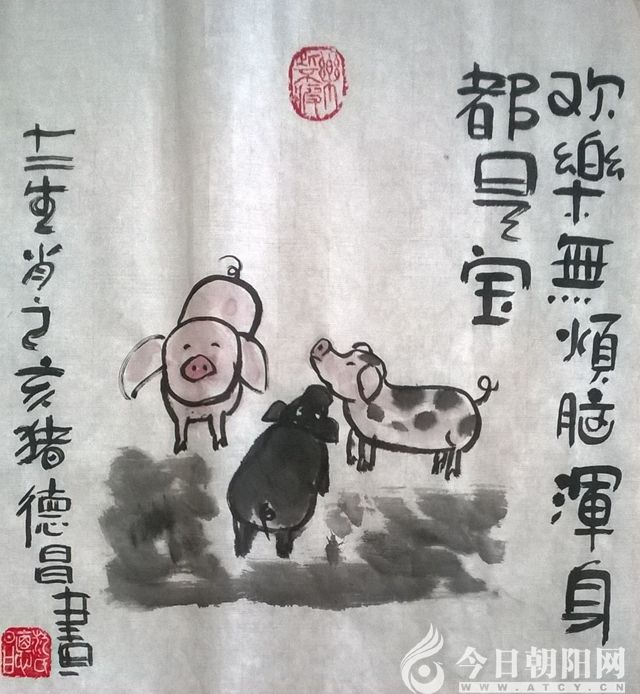 欢樂無煩脑渾身
都是宝
十二生肖之亥猪德昌畫
今日朝阳网
WWW.ATCY.CN